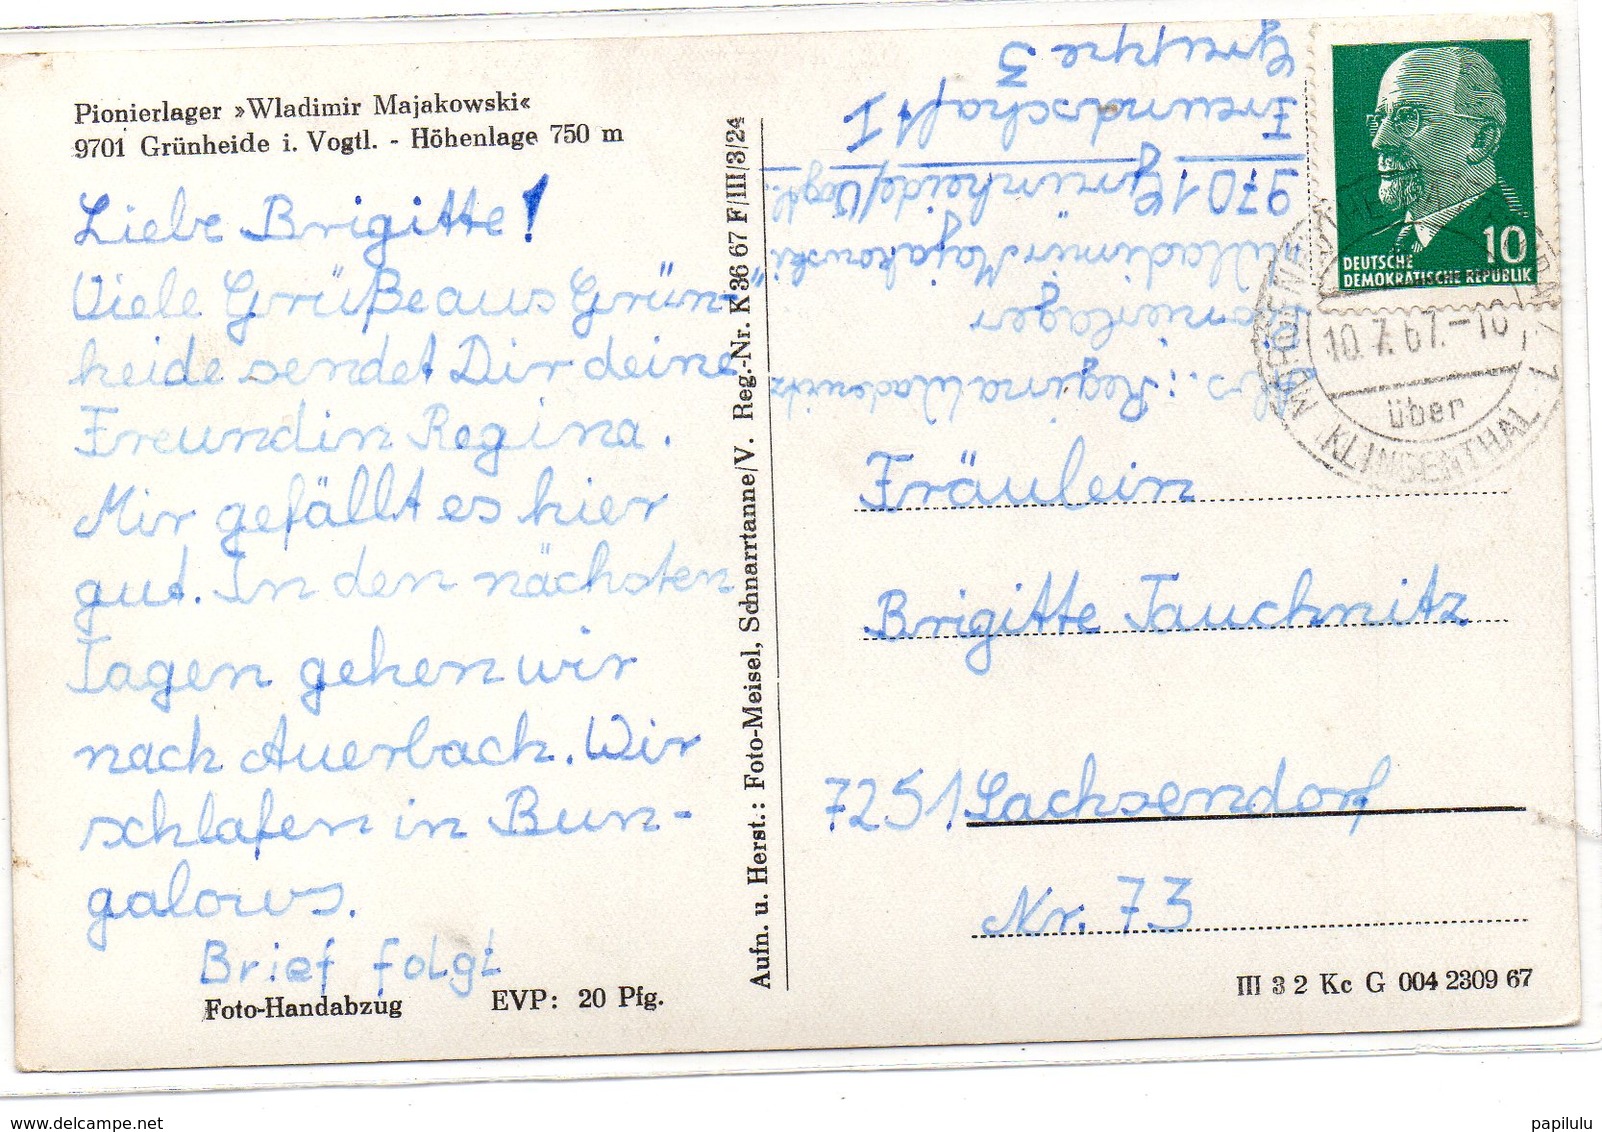 Pionierlager »Wladimir Majakowski«
9701 Grünheide i. Vogtl. - Höhenlage 750 m
Liebe Brigitte!
Viele Grüße aus Grün-
heide sendet Dir deine
Freundin Regina.
Mir gefällt es hier
gut. In den nächsten
Tagen gehen wir
nach Auerbach. Wir
schlafen in Bun-
galows.
Brief folgt
Foto-Handabzug EVP: 20 Pfg.
Aufn. u. Herst.: Foto-Meisel, Schnarrtanne/V. Reg.-Nr. K 36 67 F/III/3/24
Abs.: Regina
Pionierlager
Wladimir Majakowski
9701 Grünheide/Vogtl.
Freundschaft I
Gruppe 3
10
DEUTSCHE
DEMOKRATISCHE REPUBLIK
10.7.67.-10
über
KLINGENTHAL
Fräulein
Brigitte Tauchnitz
7251 Lachsendorf
Nr. 73
III 3 2 Kc G 004 2309 67
delcampe.net
papilulu